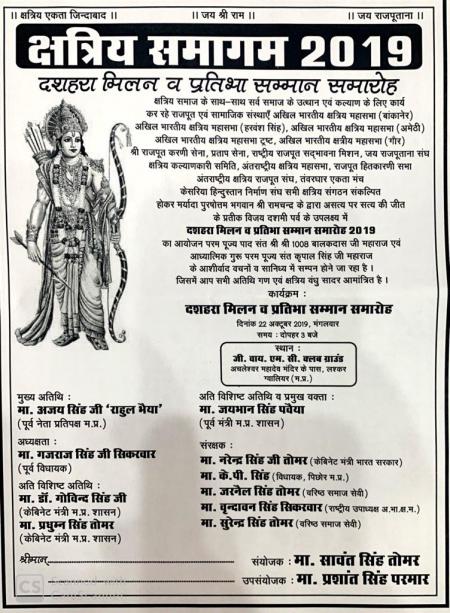 || क्षत्रिय एकता जिन्दाबाद || || जय श्री राम || || जय राजपूताना ||
क्षत्रिय समागम 2019
दशहरा मिलन व प्रतिभा सम्मान समारोह
क्षत्रिय समाज के साथ-साथ सर्व समाज के उत्थान एवं कल्याण के लिए कार्य
कर रहे राजपूत एवं सामाजिक संस्थाएँ अखिल भारतीय क्षत्रिय महासभा (बांकानेर)
अखिल भारतीय क्षत्रिय महासभा (हरवंश सिंह), अखिल भारतीय क्षत्रिय महासभा (अमेठी)
अखिल भारतीय क्षत्रिय महासभा ट्रष्ट, अखिल भारतीय क्षत्रिय महासभा (गौर)
श्री राजपूत करणी सेना, प्रताप सेना, राष्ट्रीय राजपूत सद्भावना मिशन, जय राजपूताना संघ
क्षत्रिय कल्याणकारी समिति, अंतराष्ट्रीय क्षत्रिय महासभा, राजपूत हितकारणी सभा
अंतराष्ट्रीय क्षत्रिय राजपूत संघ, तंवरघार एकता मंच
केसरिया हिन्दुस्तान निर्माण संघ सभी क्षत्रिय संगठन संकल्पित
होकर मर्यादा पुरषोत्तम भगवान श्री रामचन्द्र के द्वारा असत्य पर सत्य की जीत
के प्रतीक विजय दशमी पर्व के उपलक्ष्य में
दशहरा मिलन व प्रतिभा सम्मान समारोह 2019
का आयोजन परम पूज्य पाद संत श्री श्री 1008 बालकदास जी महाराज एवं
आध्यात्मिक गुरू परम पूज्य संत कृपाल सिंह जी महाराज
के आशीर्वाद वचनों व सानिध्य में सम्पन होने जा रहा है ।
जिसमें आप सभी अतिथि गण एवं क्षत्रिय वंधु सादर आमांत्रित है ।
कार्यक्रम :
दशहरा मिलन व प्रतिभा सम्मान समारोह
दिनांक 22 अक्टूबर 2019, मंगलवार
समय : दोपहर 3 बजे
स्थान :
जी. वाय. एम. सी. क्लब ग्राउंड
अचलेश्वर महादेव मंदिर के पास, लश्कर
ग्वालियर (म.प्र.)
मुख्य अतिथि :
मा. अजय सिंह जी 'राहुल भैया'
(पूर्व नेता प्रतिपक्ष म.प्र.)
अध्यक्षता :
मा. गजराज सिंह जी सिकरवार
(पूर्व विधायक)
अति विशिष्ट अतिथि :
मा. डॉ. गोविन्द सिंह जी
(केबिनेट मंत्री म.प्र. शासन)
मा. प्रघुम्न सिंह तोमर
(केबिनेट मंत्री म.प्र. शासन)
अति विशिष्ट अतिथि व प्रमुख वक्ता :
मा. जयभान सिंह पवैया
(पूर्व मंत्री म.प्र. शासन)
संरक्षक :
मा. नरेन्द्र सिंह जी तोमर (केबिनेट मंत्री भारत सरकार)
मा. के.पी. सिंह (विधायक, पिछोर म.प्र.)
मा. जरनैल सिंह तोमर (वरिष्ठ समाज सेवी)
मा. वृन्दावन सिंह सिकरवार (राष्ट्रीय उपाध्यक्ष अ.भा.क्ष.म.)
मा. सुरेन्द्र सिंह तोमर (वरिष्ठ समाज सेवी)
श्रीमान्
संयोजक : मा. सावंत सिंह तोमर
उपसंयोजक : मा. प्रशांत सिंह परमार
CS Scanned with
CamScanner